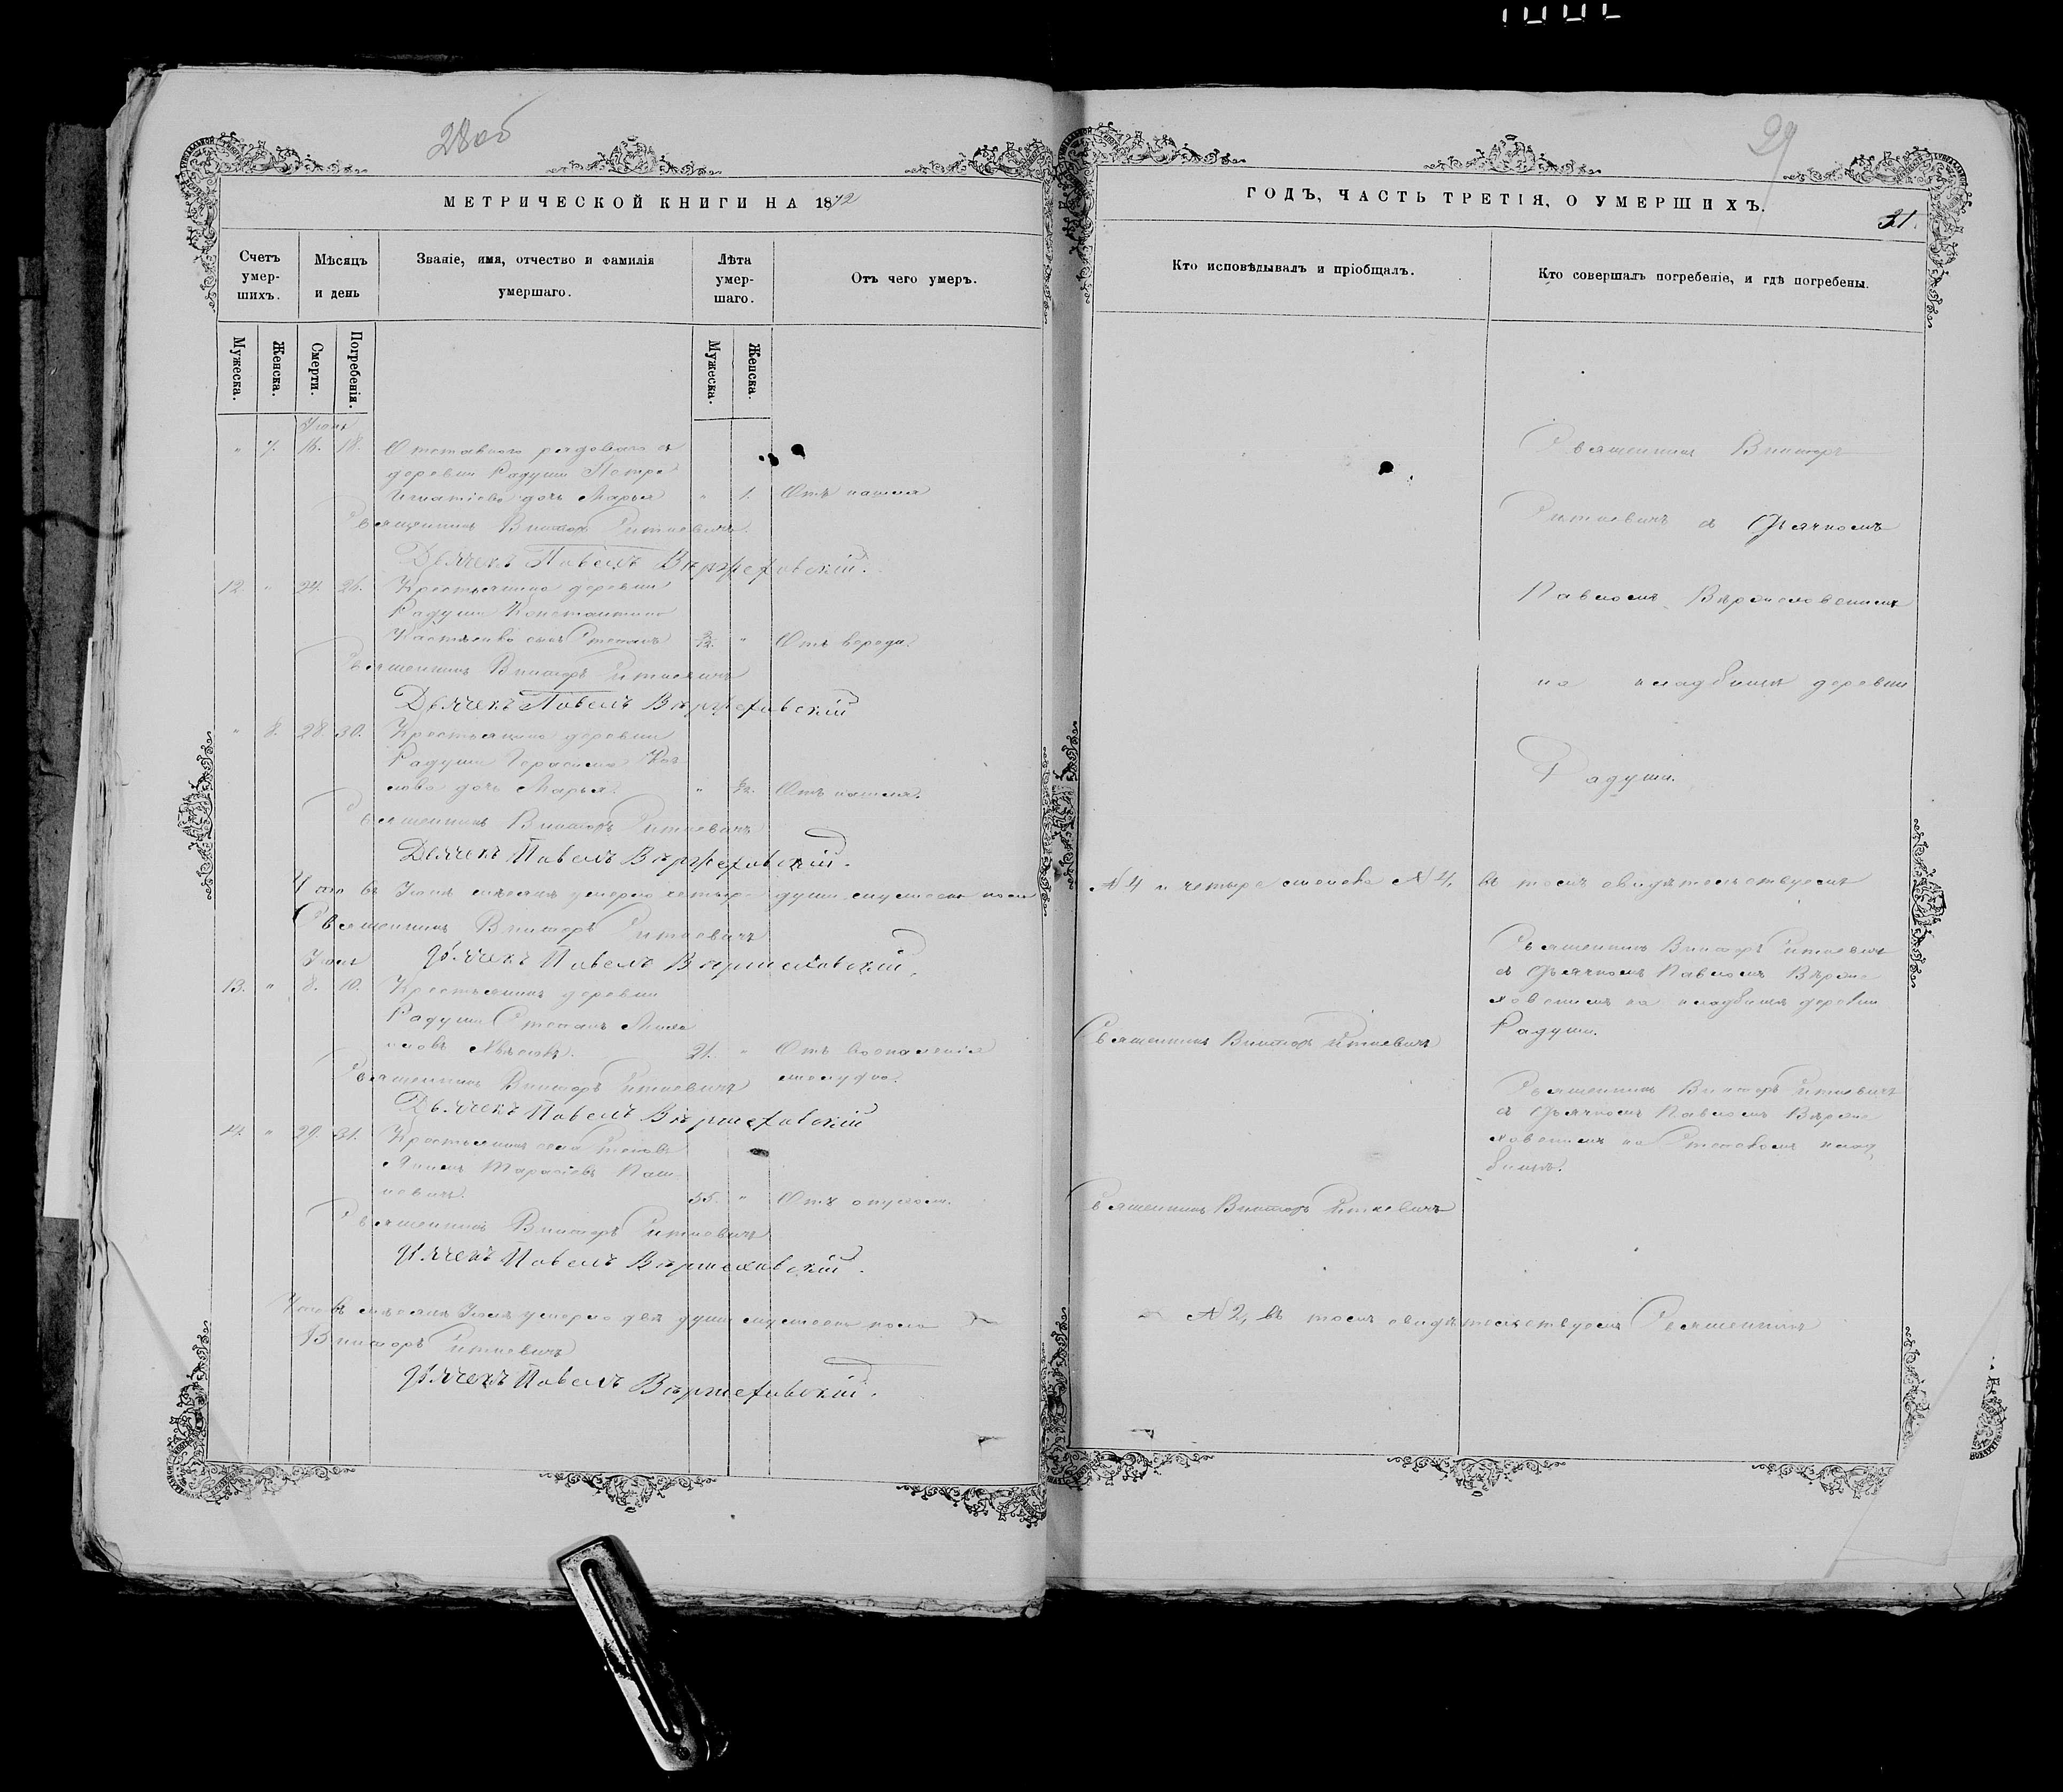 28об
МЕТРИЧЕСКОЙ КНИГИ НА 1872
Счетъ умер-шихъ.
Мѣсяцъ и день
Званіе, имя, отчество и фамилія умершаго.
Лѣта умер-шаго.
Отъ чего умеръ.
Мужеска.
Женска.
Смерти.
Погребенія.
Мужеска.
Женска.
" 7. 16. 18. Отставного рядового
деревни Радуши Петра
Игнатіева дочь Марья " 1. Отъ кашля
Священникъ Викторъ Ситкевичъ.
Дьячекъ Павелъ Вержеховскій.
12. " 24. 26. Крестьянина деревни
Радуши Константина
сынъ Степанъ " Отъ вереда.
Священникъ Викторъ Ситкевичъ
Дьячекъ Павелъ Вержеховскій
" 8. 28. 30. Крестьянина деревни
Радуши Герасима Коз-
лова дочь Марья. " Отъ кашля.
Священникъ Викторъ Ситкевичъ
Дьячекъ Павелъ Вержеховскій.
Что въ мѣсяцѣ умерло четыре души мужеска пола
Священникъ Викторъ Ситкевичъ
Дьячекъ Павелъ Вержеховскій.
Іюль
13. " 8. 10. Крестьянинъ деревни
Радуши Степанъ
21. " Отъ воспаленія
Священникъ Викторъ Ситкевичъ желудка.
Дьячекъ Павелъ Вержеховскій
14. " 29. 31. Крестьянинъ села
Якимъ Тарасіевъ
55. " Отъ опухоли.
Священникъ Викторъ Ситкевичъ
Дьячекъ Павелъ Вержеховскій.
Что въ мѣсяцѣ Іюлѣ умерло двѣ души мужеска пола
Викторъ Ситкевичъ
Дьячекъ Павелъ Вержеховскій.
29
ГОДЪ, ЧАСТЬ ТРЕТІЯ, О УМЕРШИХЪ.
31.
Кто исповѣдывалъ и пріобщалъ.
Кто совершалъ погребеніе, и гдѣ погребены.
Священникъ Викторъ
Ситкевичъ съ Дьячкомъ
Павломъ Вержеховскимъ
на кладбищѣ деревни
Радуши.
№ 4 и четыре женска № 4, въ томъ свидѣтельствуемъ
Священникъ Викторъ Ситкевичъ
съ Дьячкомъ Павломъ Верже-
ховскимъ на кладбищѣ деревни
Радуши.
Священникъ Викторъ Ситкевичъ
Священникъ Викторъ Ситкевичъ
съ Дьячкомъ Павломъ Верже-
ховскимъ на клад-
бищѣ.
Священникъ Викторъ Ситкевичъ
№ 2, въ томъ свидѣтельствуемъ Священникъ